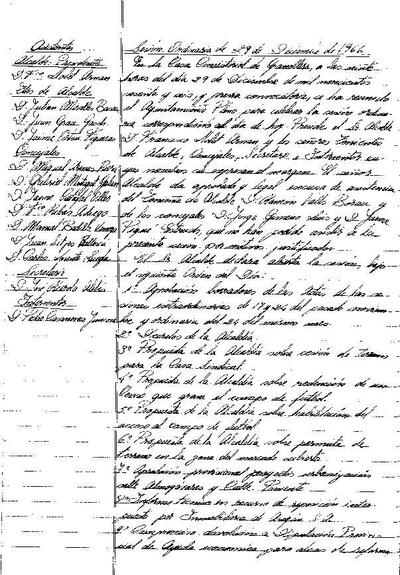 Asistentes
Alcalde-Presidente
D. Fco. Llobet Arnan
Ttes. de Alcalde
D. Julian
D. Juan Grau
D. Jaime
Concejales
D. Miguel
D. Gabriel
D. Jaime
D. Fco. Ribas
D. Manuel
D. Juan
D. Carlos
Secretario
D.
Interventor
D. Pedro Casanovas
Sesión Ordinaria de 29 de Diciembre de 1966
En la Casa Consistorial de Granollers, a las veinte
horas del día 29 de Diciembre de mil novecientos
sesenta y seis, y previa convocatoria, se ha reunido
el Ayuntamiento Pleno para celebrar la sesión ordina-
ria correspondiente al día de hoy. Preside el Sr. Alcalde
D. Francisco Llobet Arnan y los señores Tenientes
de Alcalde, Concejales, Secretario e Interventor cu-
yos nombres se expresan al margen. El señor
Alcalde da aprobada y legal excusa de asistencia
del Teniente de Alcalde D. Ramon Valls y
de los concejales D. Jorge y D. Jaime
que no han podido asistir a la
presente sesión por motivos justificados.
El Sr. Alcalde declara abierta la sesión, bajo
el siguiente Orden del Día:
1º Aprobación borradores de las Actas de las se-
siones extraordinarias de 17 y 24 del pasado noviem-
bre y ordinaria del 24 del mismo mes.
2º Decretos de la Alcaldía.
3º Propuesta de la Alcaldía sobre cesión de terreno
para la Casa Sindical.
4º Propuesta de la Alcaldía sobre redención de un
censo que grava el campo de fútbol.
5º Propuesta de la Alcaldía sobre habilitación del
acceso al campo de fútbol
6º Propuesta de la Alcaldía sobre permuta de
terreno en la zona del mercado cubierto
7º Aprobación provisional proyecto urbanización
calle Almogávares y Calle
8º Informe técnico en recurso de reposición inter-
puesto por Inmobiliaria de Aragón S.A.
9º Compromiso devolución a Diputación Provin-
cial de Ayuda económica para obras de reforma